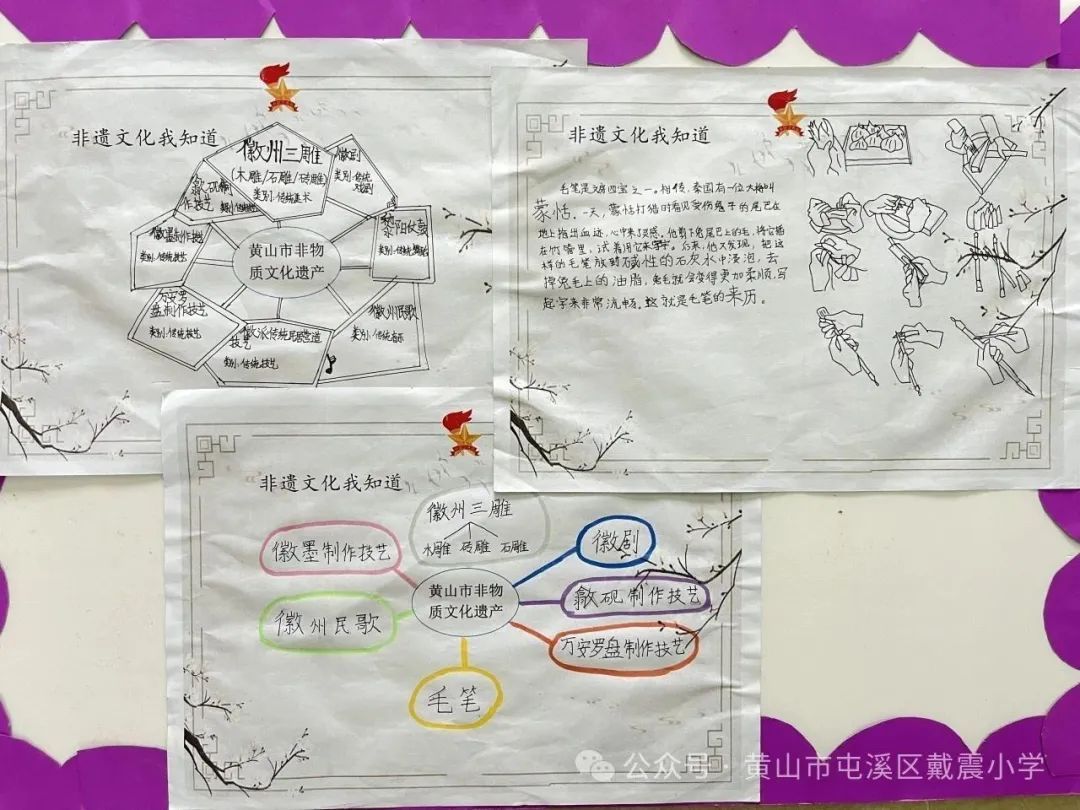 非遗文化我知道
徽州三雕
(木雕/石雕/砖雕)
类别:传统美术
徽剧
类别:传统
戏剧
歙砚制
作技艺
类别:传统技艺
黎阳仗鼓
徽墨制作技艺
类别:传统技艺
黄山市非物
质文化遗产
万安罗
盘制作技艺
类别:传统技艺
徽派传统民居营造
技艺
类别:传统技艺
徽州民歌
类别:传统音乐
非遗文化我知道
毛笔是文房四宝之一。相传,秦国有一位大将叫
蒙恬,一天,蒙恬打猎时看见受伤兔子的尾巴在
地上拖出血迹,心中来了灵感。他剪下兔尾巴上的毛,将它插
在竹管里,试着用它来写字。后来,他又发现,把这
样的毛笔放到碱性的石灰水中浸泡,去
掉兔毛上的油脂,兔毛就会变得更加柔顺,写
起字来非常流畅。这就是毛笔的来历。
非遗文化我知道
徽州三雕
木雕 砖雕 石雕
徽墨制作技艺
徽剧
黄山市非物
质文化遗产
歙砚制作技艺
徽州民歌
万安罗盘制作技艺
毛笔
公众号·黄山市屯溪区戴震小学